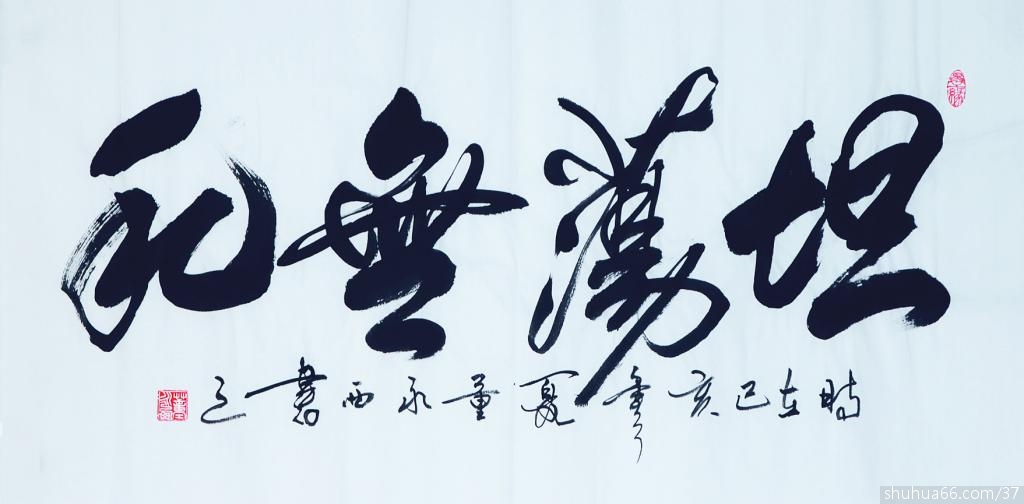 坦蕩無私
時在己亥季夏董永西書之
shuhua66.com/37